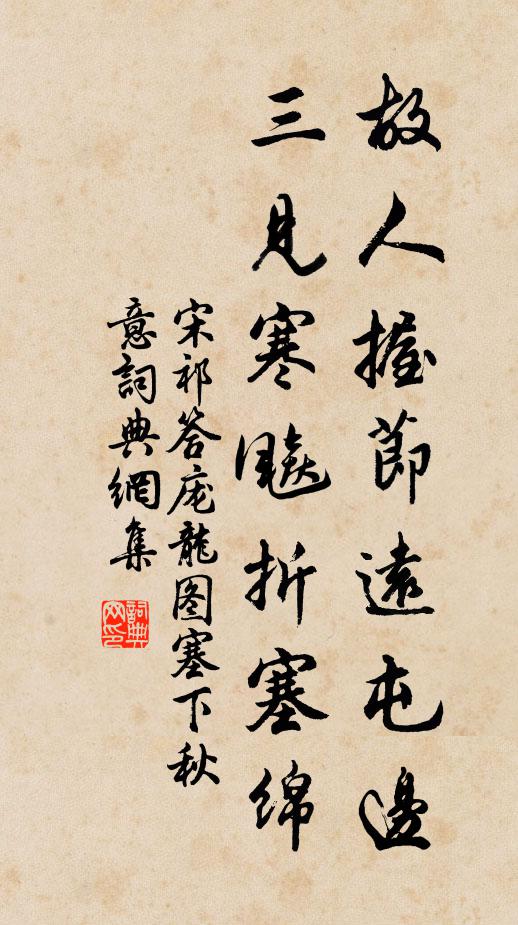 故人握節遠屯邊
三見寒飈折塞绵
宋祁答庞龍图塞下秋
意詞典網集
詞典網印